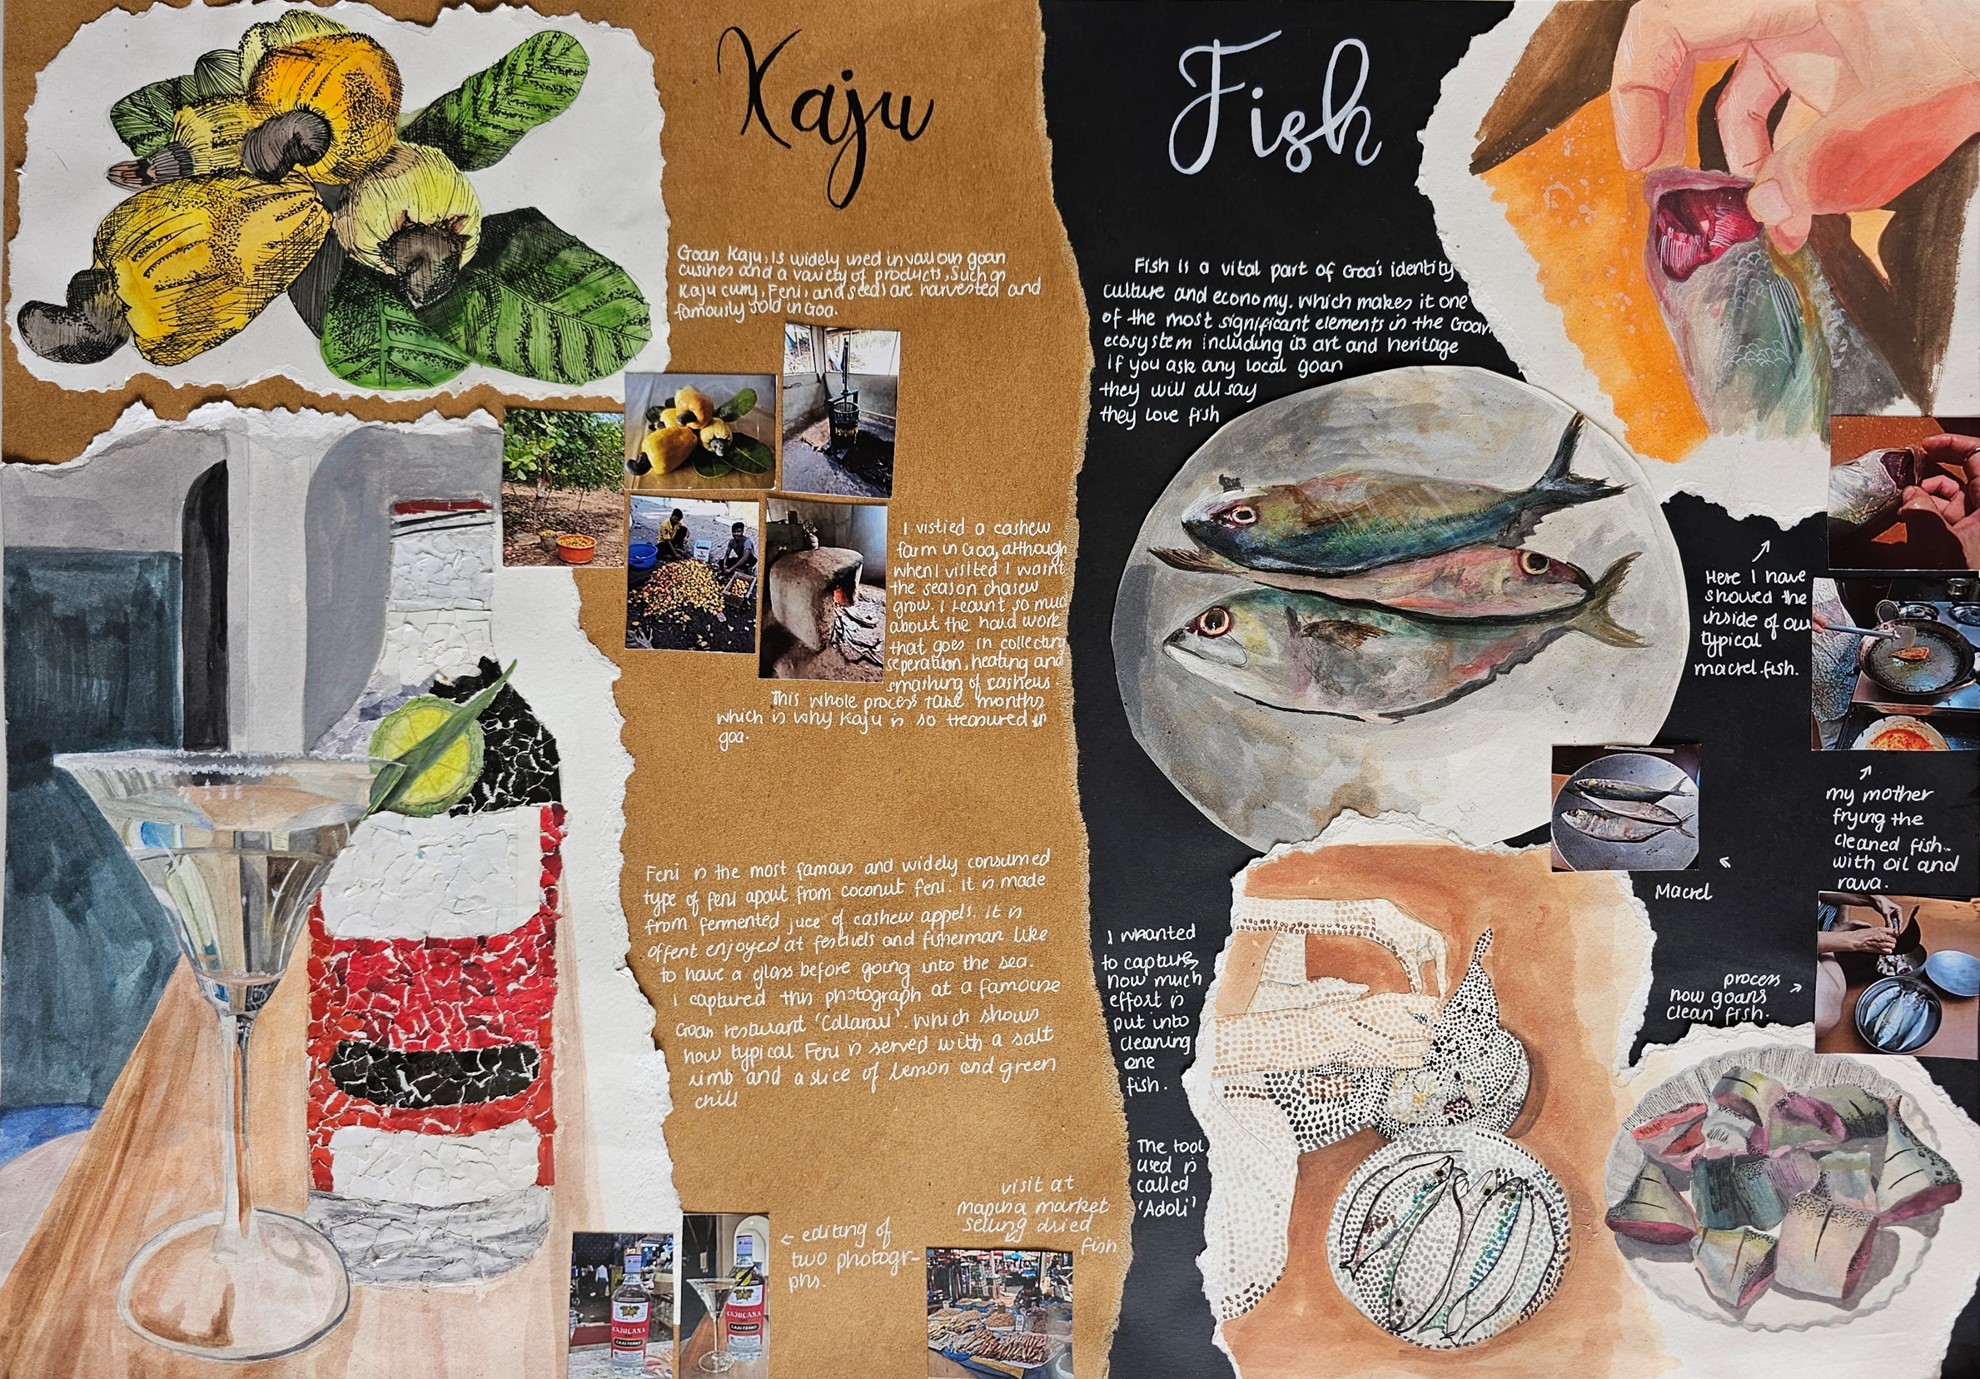 Kaju
Goan Kaju, is widely used in variours goan
cusines and a variety of products, such as
Kaju curry, Feni, and seeds are harvested and
famously sold in Goa.
I vistied a cashew
farm in Goa, although
when I visited I wasnt
the season chasew
grow. I learnt so much
about the hard work
that goes in collecting
seperation, heating and
smashing of cashews.
This whole process take months
which is why Kaju is so treasured in
goa.
Feni is the most famous and widely consumed
type of feni apart from coconut feni. It is made
from fermented juce of cashew appels. It is
offent enjoyed at festivels and fisherman like
to have a glass before going into the sea.
I captured this photograph at a famouse
Goan resturant 'Collarau'. Which shows
how typical Feni is served with a salt
rimb and a slice of lemon and green
chill
← editing of
two photogr-
phs.
visit at
mapusa market
selling dried
fish
KAJUCANA
KAJUCANA
Fish
Fish is a vital part of Goa's identity
culture and economy. which makes it one
of the most significant elements in the Goan
ecosystem including its art and heritage
If you ask any local goan
they will all say
they love fish
Here I have
showed the
inside of our
typical
macrel fish.
my mother
frying the
cleaned fish-
with oil and
rava.
Macrel
process
how goans
clean fish.
I wanted
to capture
how much
effort is
put into
cleaning
one
fish.
The tool
used is
called
'Adoli'